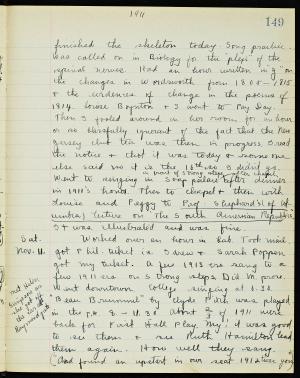 1911
149
finished the skeleton today. Song practice.
was called on in Biology for the plexi of the
nerves. Had an hour written in on
the changes in Wordsworth from 1800 - 1815
& the evidences of change in the poems of
1814. Louise Boynton & I went to Pay Day.
Then I fooled around in her room for an hour
or so blissfully ignorant of the fact that the New
Jersey club tea was then in progress. I read
the notice & that it was today & someone
else said no it is the 18th so I didn't go.
in front of Strong steps after chapel.
Went to singing in after dinner
in 1911's honor. Then to chapel & then with
Louise and Peggy to Prof Shepherd's (of
Columbia) lecture on The South American Republics,
It was illustrated and was fine.
Sat.
Nov. 11.
Worked our an hour in Lab. Took mail
got Phil. ticket. Saw & Sarah Poppen
got my ticket. A few 1913 ers sang to a
few 1911 ers on Strong steps. Did Va. more.
Went downtown. College singing at 6.30.
"Beau Brummel" by Clyde Fitch was played
in the P.H. 8 - 11.30. About 2/3 of 1911 were
back for First Hall Play. My! it was good
to see them & see Ruth Hamilton lead
them again. How well they sang.
(And found an upstart in our seat 1912